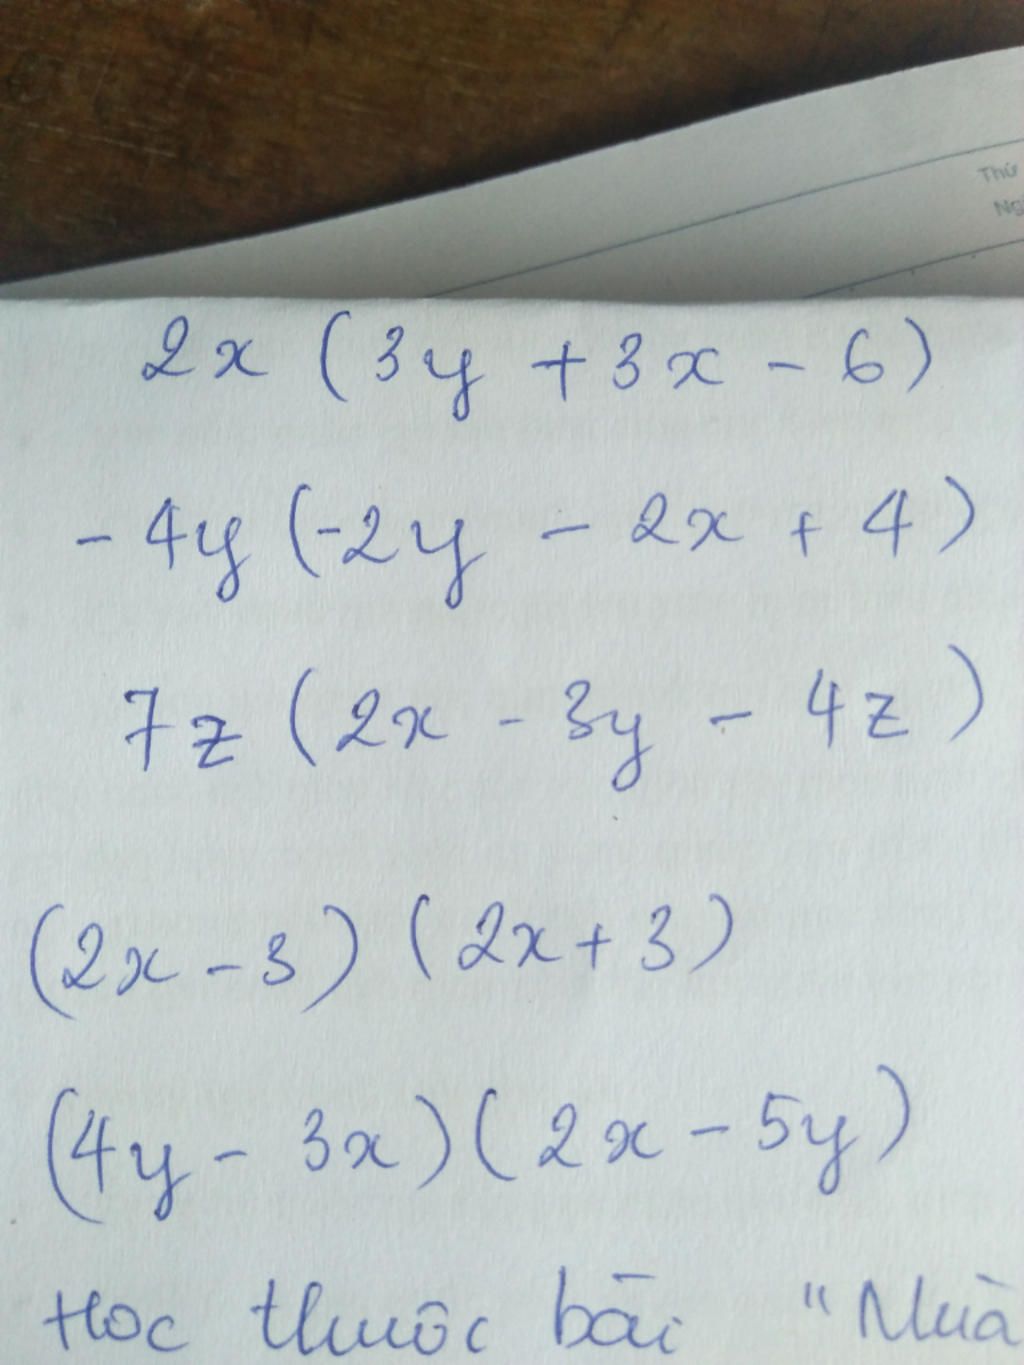 Thứ
Ng
2x (3y + 3x - 6)
- 4y (-2y - 2x + 4)
7z (2x - 3y - 4z)
(2x - 3) (2x + 3)
(4y - 3x) (2x - 5y)
Học thuộc bài "